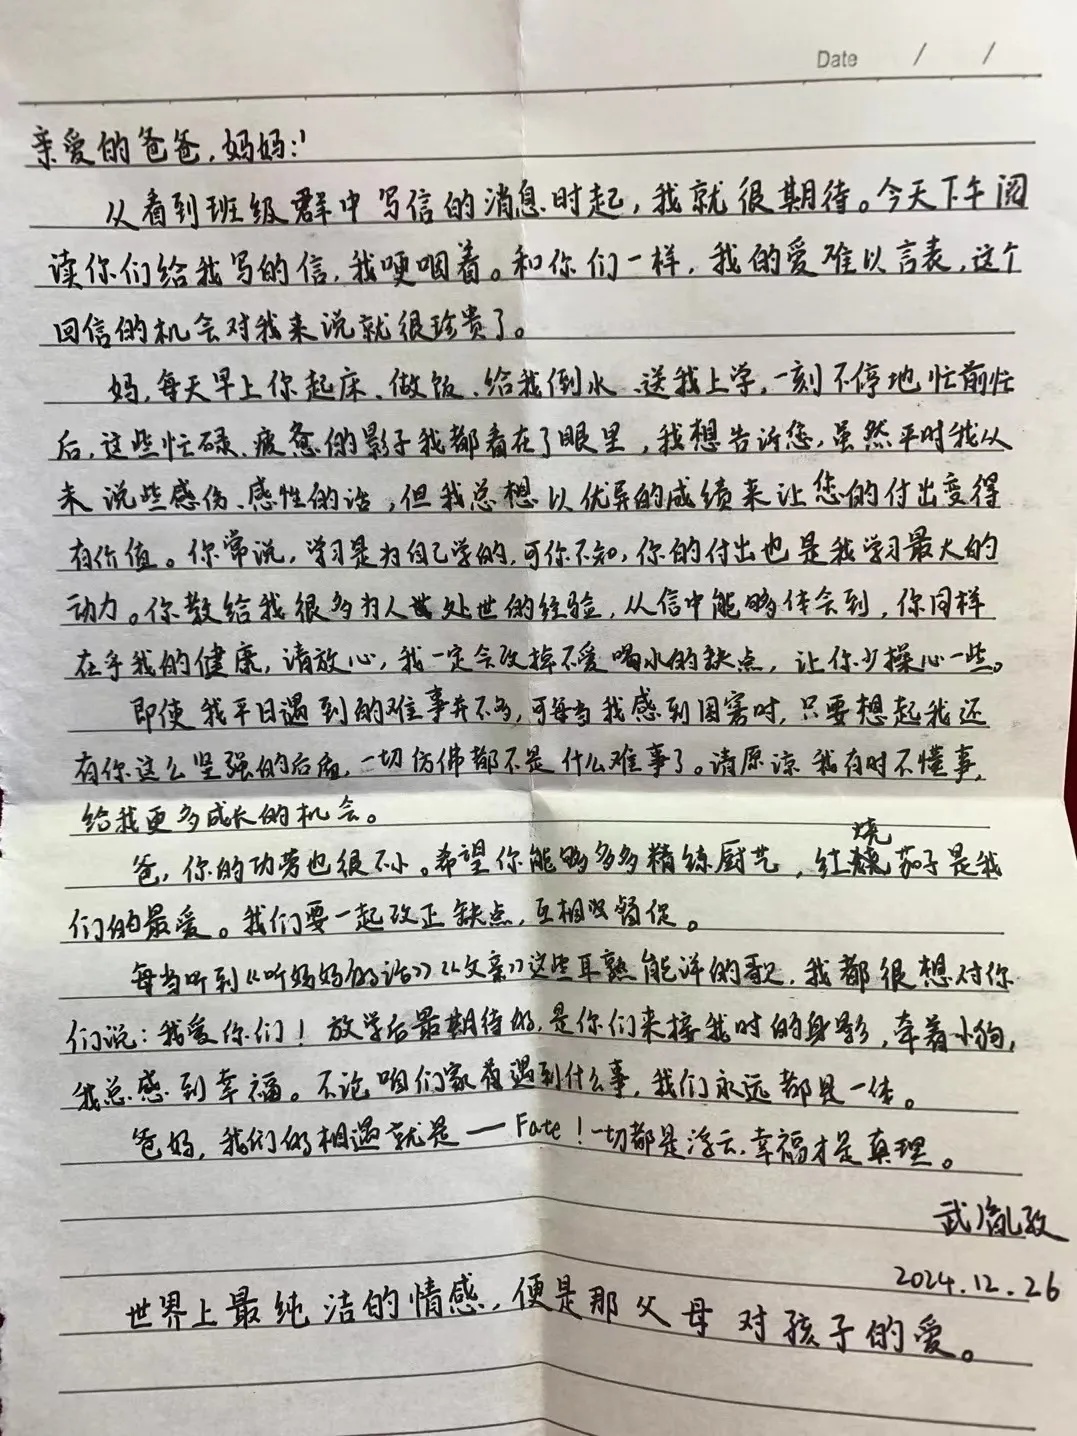 Date / /
亲爱的爸爸,妈妈:
从看到班级群中写信的消息时起,我就很期待。今天下午阅
读你们给我写的信,我哽咽着。和你们一样,我的爱难以言表,这个
回信的机会对我来说就很珍贵了。
妈,每天早上你起床、做饭、给我倒水、送我上学,一刻不停地忙前忙
后,这些忙碌、疲惫的影子我都看在了眼里,我想告诉您,虽然平时我从
未说些感伤、感性的话,但我总想以优异的成绩来让您的付出变得
有价值。你常说,学习是为自己学的,可你不知,你的付出也是我学习最大的
动力。你教给我很多为人处世的经验,从信中能够体会到,你同样
在乎我的健康,请放心,我一定会改掉不爱喝水的缺点,让你少操心一些。
即使我平日遇到的难事并不多,可每当我感到困窘时,只要想起我还
有你这么坚强的后盾,一切仿佛都不是什么难事了。请原谅我有时不懂事,
给我更多成长的机会。
爸,你的功劳也很不小。希望你能够多多精练厨艺,红烧茄子是我
们的最爱。我们要一起改正缺点,互相督促。
每当听到《听妈妈的话》《父亲》这些耳熟能详的歌,我都很想对你
们说:我爱你们!放学后最期待的,是你们来接我时的身影,牵着小狗,
我总感到幸福。不论咱们家有遇到什么事,我们永远都是一体。
爸妈,我们的相遇就是一Fate!一切都是浮云,幸福才是真理。
武胤孜
2024.12.26
世界上最纯洁的情感,便是那父母对孩子的爱。